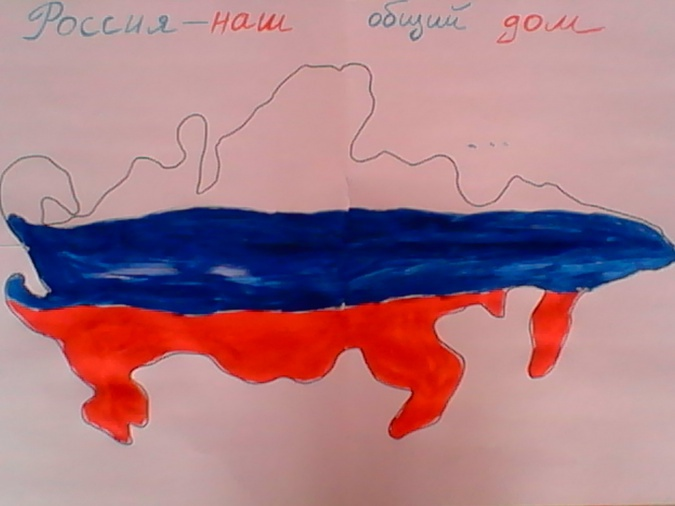 Россия – наш общий дом